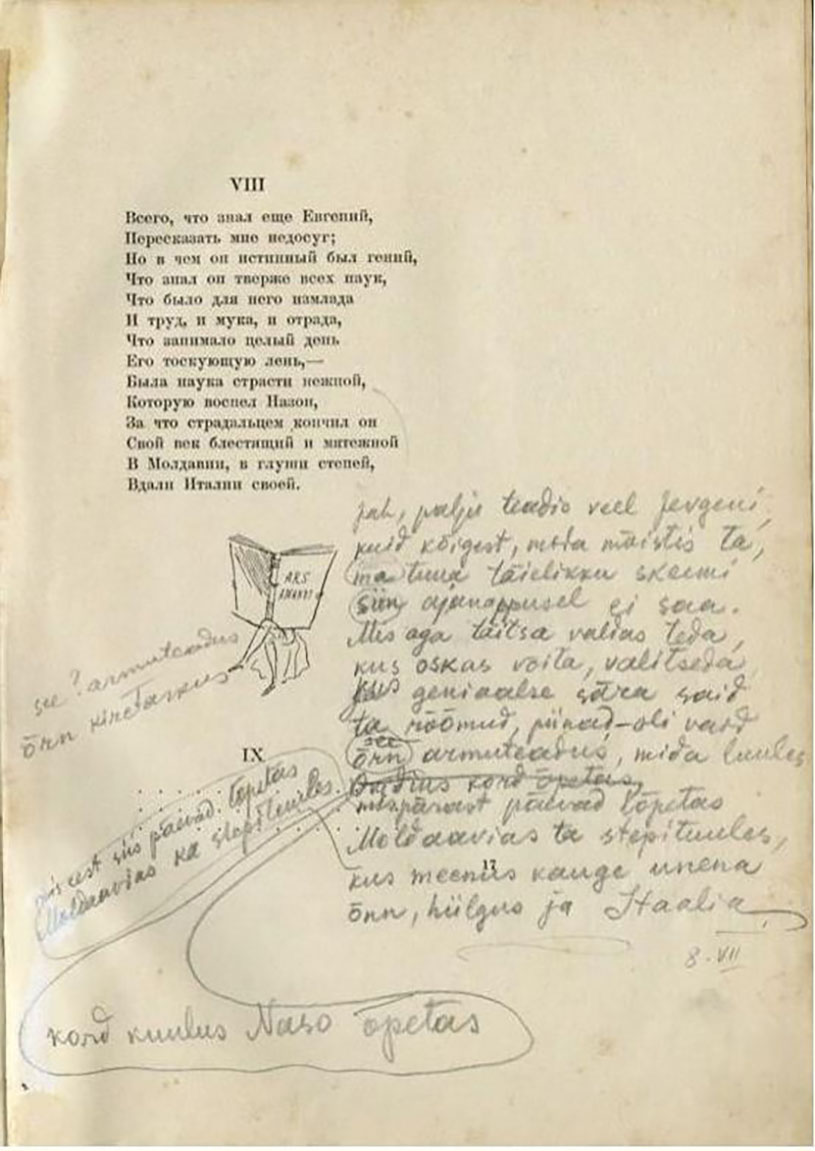 VIII
Всего, что знал еще Евгений,
Пересказать мне недосуг;
Но в чем он истинный был гений,
Что знал он тверже всех наук,
Что было для него измлада
И труд, и мука, и отрада,
Что занимало целый день
Его тоскующую лень,—
Была наука страсти нежной,
Которую воспел Назон,
За что страдальцем кончил он
Свой век блестящий и мятежной
В Молдавии, в глуши степей,
Вдали Италии своей.
Jah, palju teadis veel Jevgeni,
kuid kõigest, mida mõistis ta,
ma tuua täielikku skeemi
siin ajanappusel ei saa.
Mis aga täitsa valdas teda,
kus oskas võita, valitseda,
kus geniaalse sära said
ta rõõmud, piinad – oli vaid
see
õrn armuteadus, mida luules
Ovidius kord õpetas,
mispärast päevad lõpetas
Moldaavias ta stepituules,
kus meenus kauge unena
õnn, hiilgus ja Itaalia.
8. VII
ARS
AMANDI
see? armuteadus
õrn kiretarkus
IX
miseest siis päevad lõpetas
Moldaavias ka stepituules
17
kord kuulus Naso õpetas